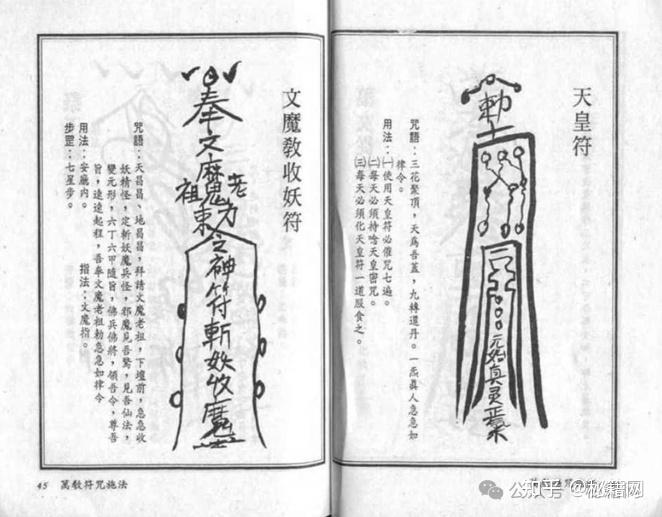 天皇符
咒語：三花聚頂，天為吾蓋，九轉還丹。一炁真人急急如
律令。
用法：㈠使用天皇符必催咒七遍。
㈡每天必須持唸天皇密咒。
㈢每天必須化天皇符一道服食之。
勅
元始真灵
文魔教收妖符
奉文魔
老祖
東方
令神符斬妖收魔
咒語：天昌昌、地昌昌，拜請文魔老祖，下壇前，急急收
妖精怪，定斬妖魔兵怪，邪魔見吾驚，見吾仙法，
變元形，六丁六甲隨旨，佛兵佛將，領吾令，尊吾
旨，速速起程，吾奉文魔老祖勅急急如律令
用法：安廳內。 指法：文魔指。
步罡：七星步。
45 萬教符咒施法
知乎 @秘籍网